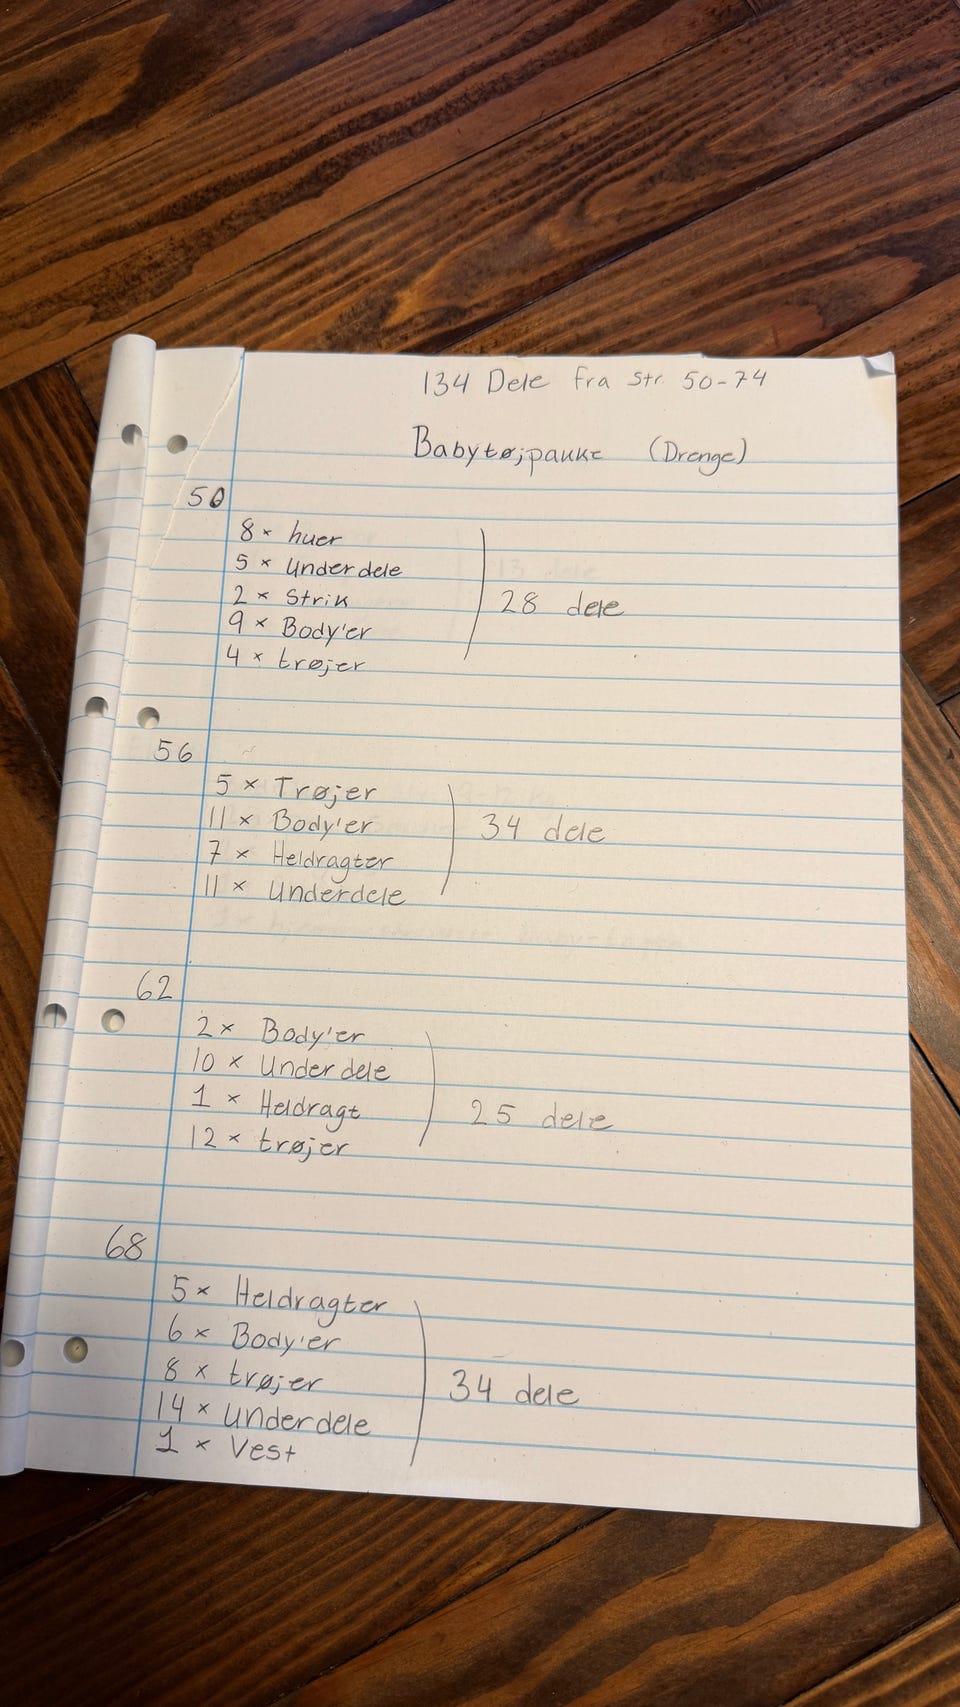 134 Dele fra str. 50-74
Babytøjpakke (Drenge)
50
8 × huer
5 × Underdele
2 × Strik
9 × Body'er
4 × trøjer
28 dele
56
5 × Trøjer
11 × Body'er
7 × Heldragter
11 × Underdele
34 dele
62
2 × Body'er
10 × Underdele
1 × Heldragt
12 × trøjer
25 dele
68
5 × Heldragter
6 × Body'er
8 × trøjer
14 × Underdele
1 × Vest
34 dele